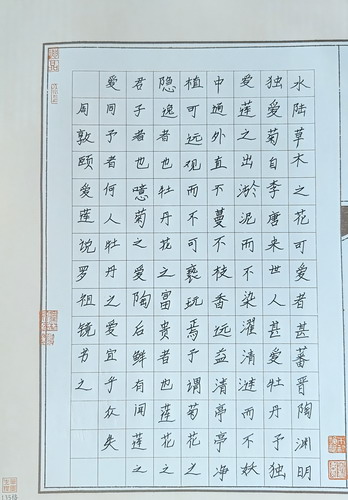 水陆草木之花可爱者甚蕃晋陶渊明
独爱菊自李唐来世人甚爱牡丹予独
爱莲之出淤泥而不染濯清涟而不妖
中通外直不蔓不枝香远益清亭亭净
植可远观而不可亵玩焉予谓菊花之
隐逸者也牡丹花之富贵者也莲花之
君子者也噫菊之爱陶后鲜有闻莲之
爱同予者何人牡丹之爱宜乎众矣
周敦颐爱莲说罗祖镜书之
135格